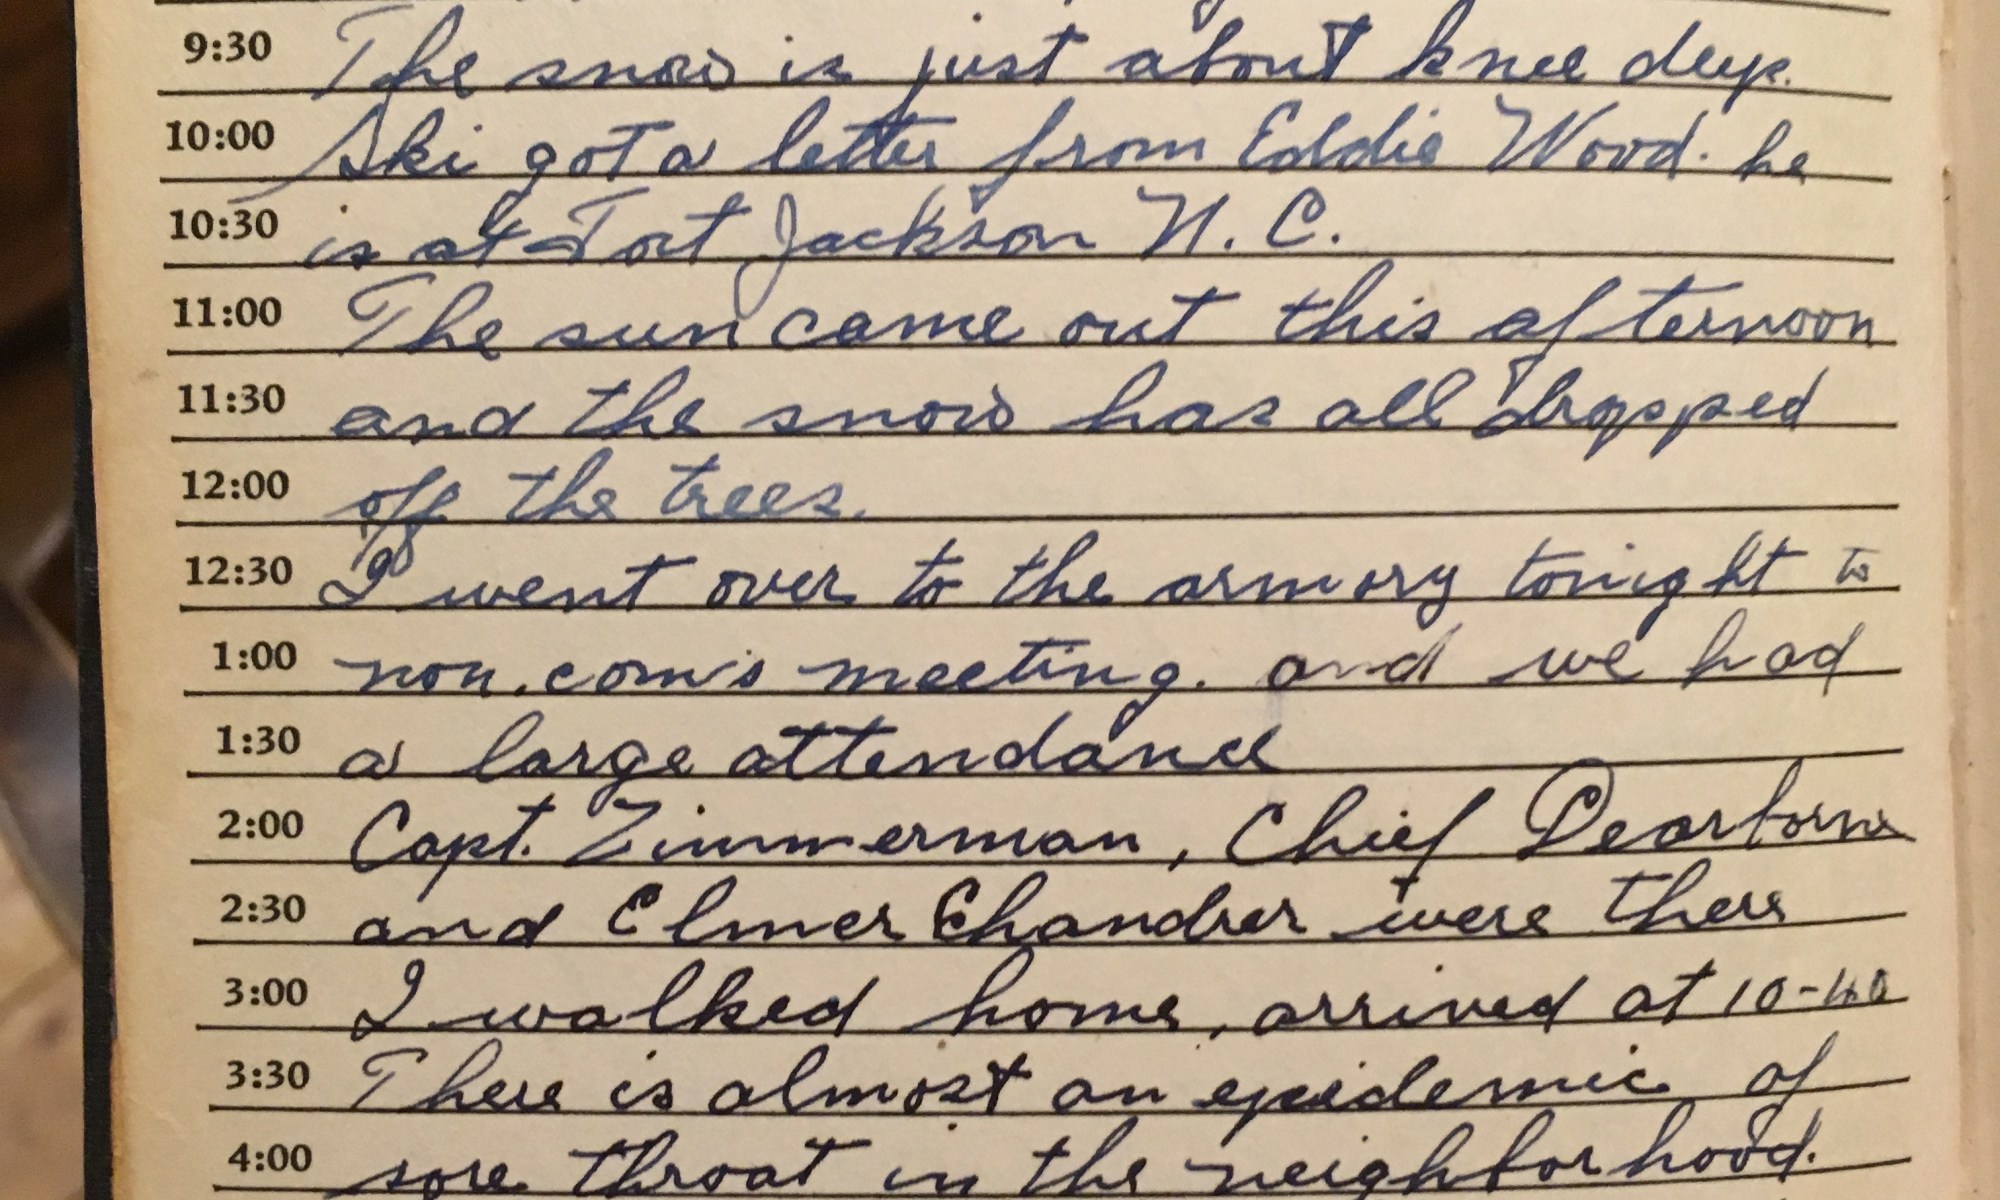 9:30 The snow is just about knee deep.
10:00 Ski got a letter from Eddie Wood. he
10:30 is at Fort Jackson N. C.
11:00 The sun came out this afternoon
11:30 and the snow has all dropped
12:00 off the trees.
12:30 I went over to the armory tonight to
1:00 non.com's meeting. and we had
1:30 a large attendance
2:00 Capt. Zimmerman, Chief Dearborn
2:30 and Elmer were there
3:00 I walked home, arrived at 10-40
3:30 There is almost an epidemic of
4:00 sore throat in the neighborhood.